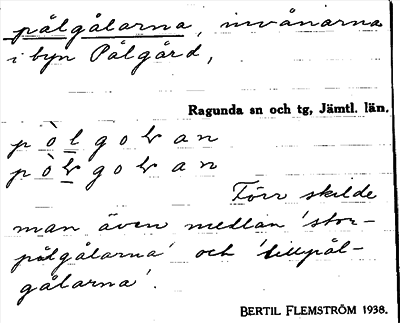 pålgålarna, invånarna
i byn Pålgård,
Ragunda sn och tg, Jämtl. län.
p ò l g o ł a n
p ò ł g o ł a n
Förr skilde
man även mellan 'stor-
pålgålarna' och 'lillpål-
gålarna'.
BERTIL FLEMSTRÖM 1938.